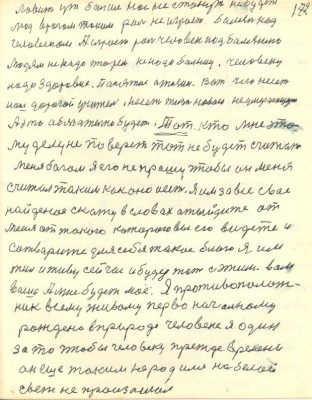 172
ловит ут больше нос не станут не будет
под врагом таким рай не играет болезнь над
человеком А играет рай человек над болезнию
Людям не надо творец не надо болезнь, человеку
надо здоровье. Памятное твоим. Вот чего несет
нам дорогой учитель, несет тело новое
А это обязательно будет. Тот, кто мне
му делу не поверит тот не будет считать
меня богом я его не прошу чтобы он меня
считал таким как оно есть. Я им за все свое
найденое скажу в словах отыйдите от
меня от такого которого вы его видете и
сотварите для себя такое благо Я им
тие и живу сейчас и буду тот с этим. вам
ваше А мне будет мое. Я противополож-
ник всему живому перво начальному
рождено в природе человек я один
за то чтобы человеку прежде времени
он еще таким народился на белой
свет не произошол